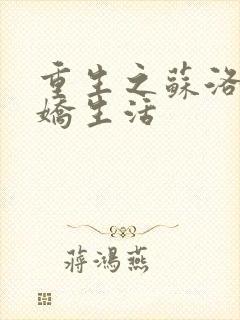 重生之蘇洛
嬌生活
蔣鴻燕